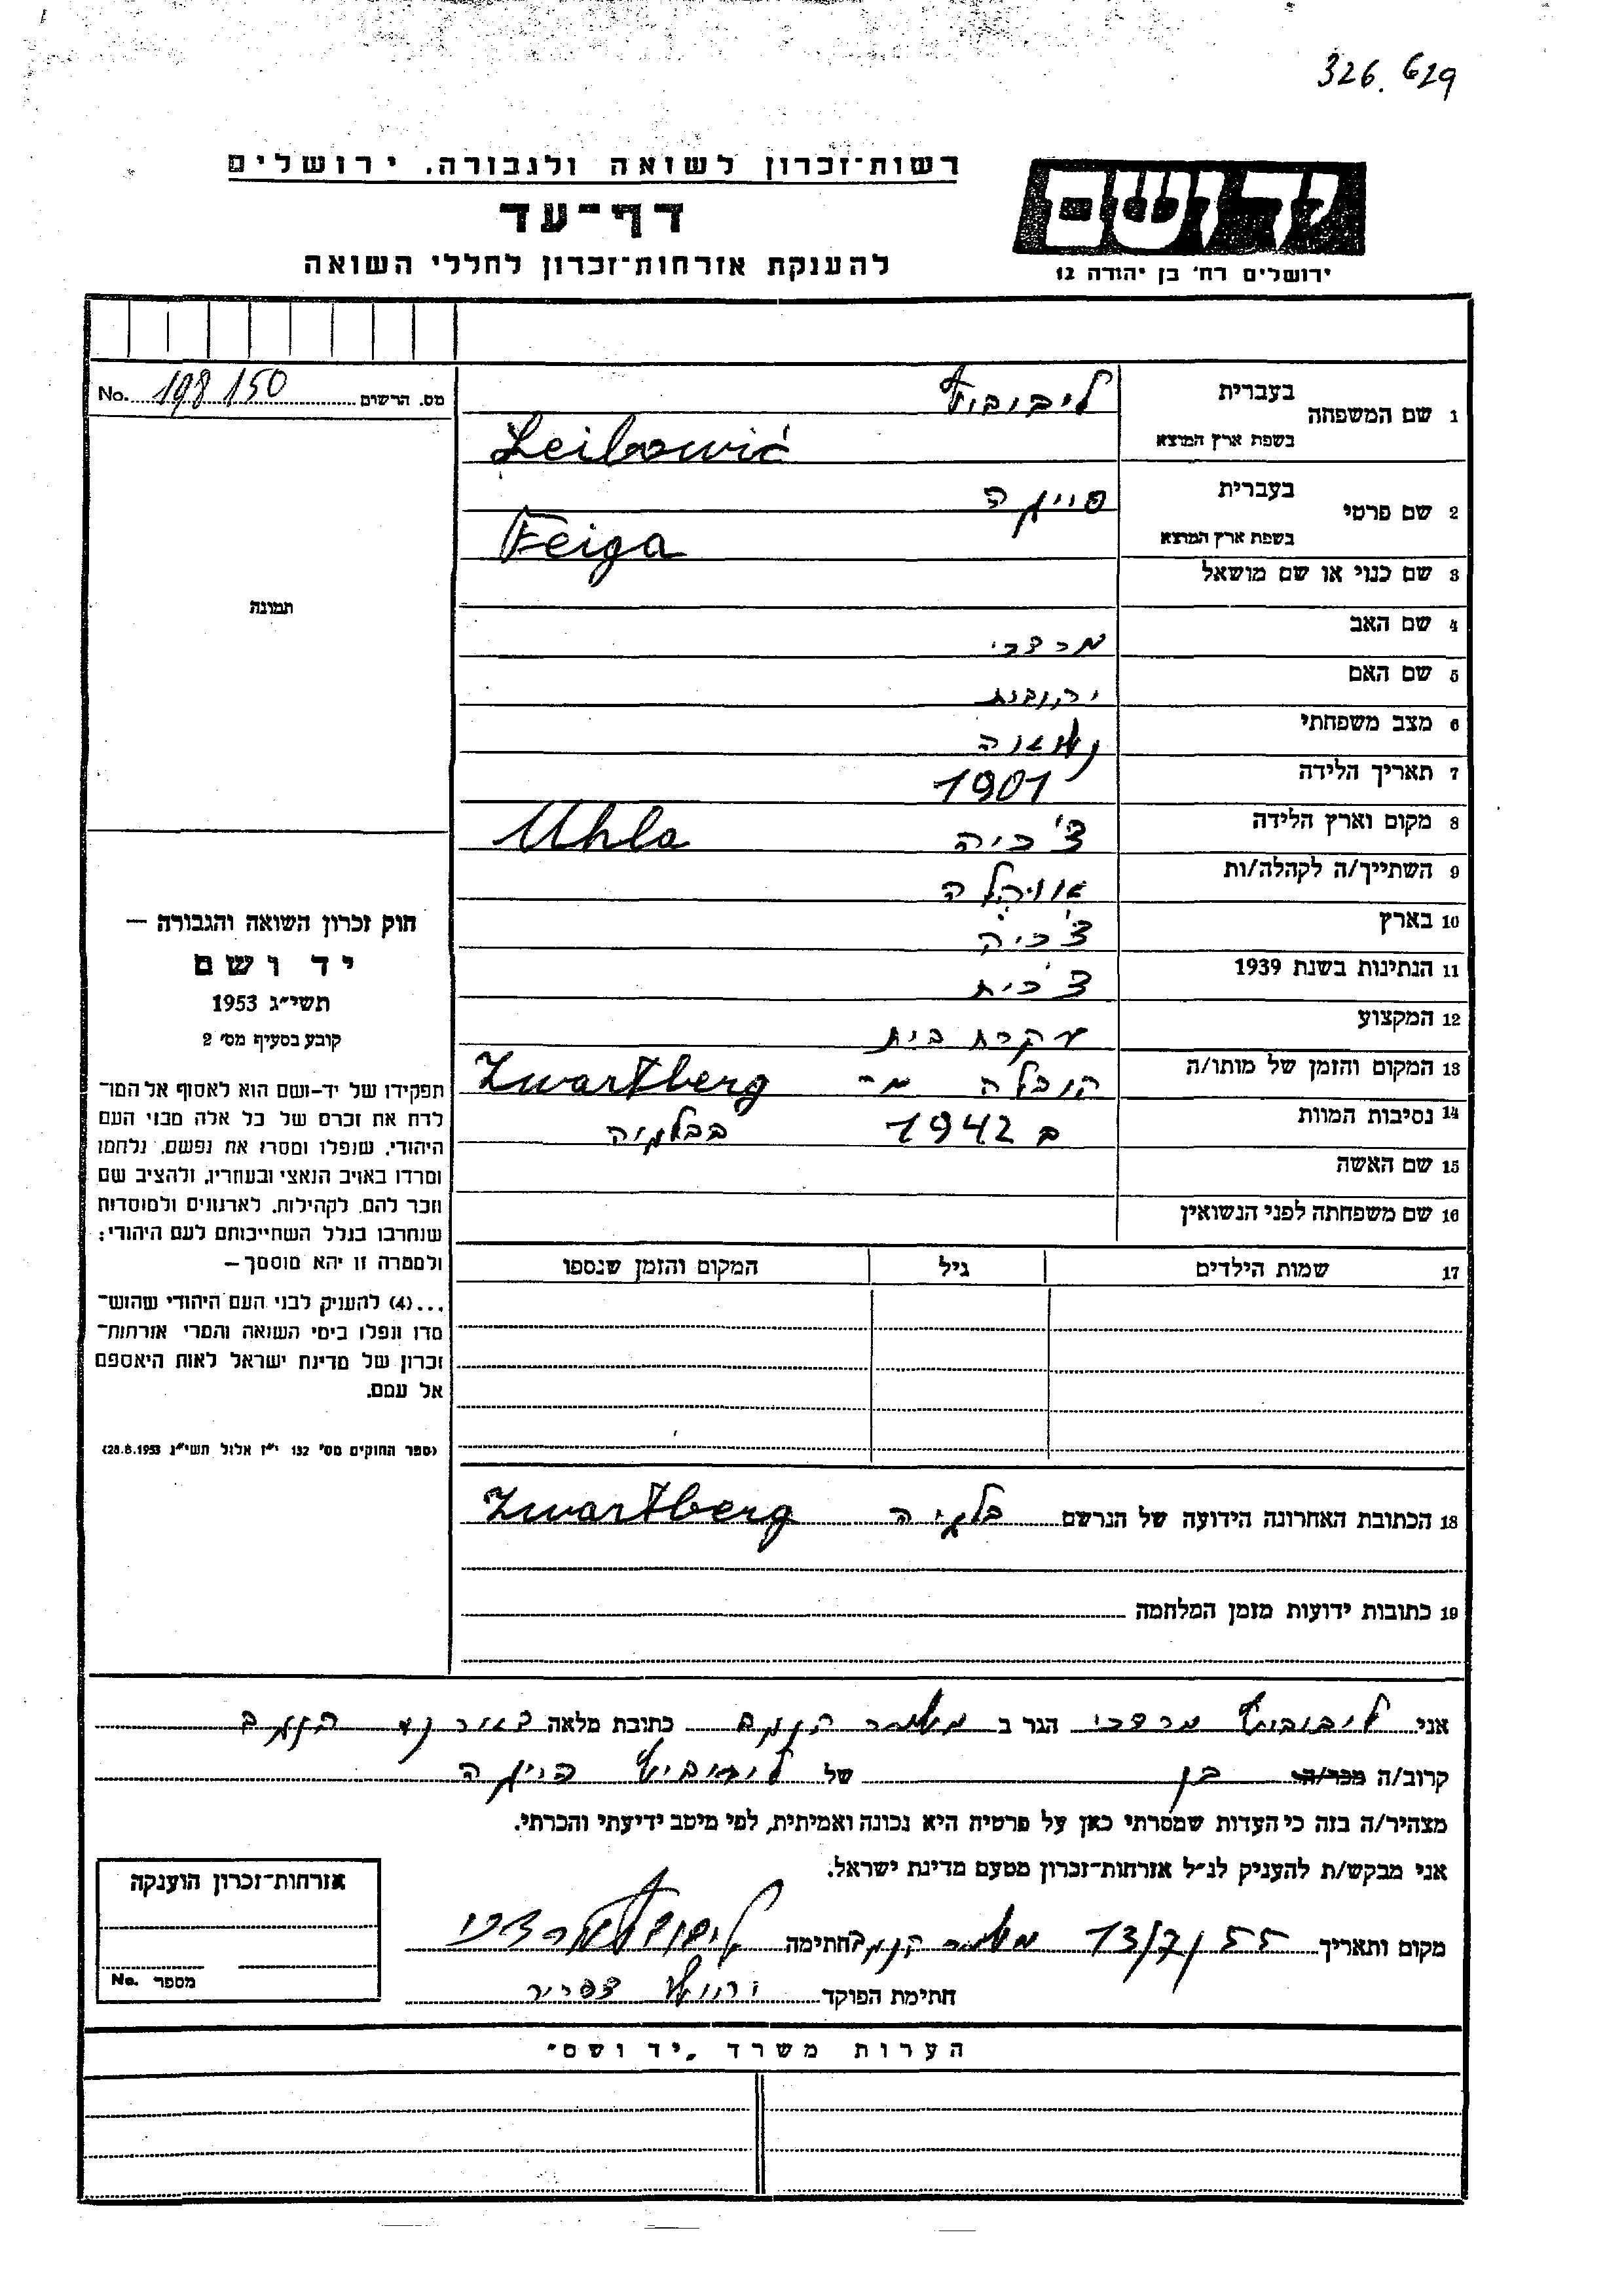 326.629
רשות־זכרון לשואה ולגבורה, ירושלים
דף־עד
להענקת אזרחות־זכרון לחללי השואה
יד ושם
ירושלים רח' בן יהודה 12
מס. הרשום 198150 No.
תמונה
1 שם המשפחה בעברית ליבוביץ
בשפת ארץ המוצא Leibović
2 שם פרטי בעברית פייגה
בשפת ארץ המוצא Feiga
3 שם כנוי או שם מושאל
4 שם האב מרדכי
5 שם האם
6 מצב משפחתי נשואה
7 תאריך הלידה 1901
8 מקום וארץ הלידה צ'כיה Uhla
9 השתייך/ה לקהלה/ות אוהלה
10 בארץ צ'כיה
11 הנתינות בשנת 1939 צ'כית
12 המקצוע עקרת בית
13 המקום והזמן של מותו/ה הובלה מ- Zwartberg
14 נסיבות המוות ב 1942 בבלגיה
15 שם האשה
16 שם משפחתה לפני הנשואין
17 שמות הילדים גיל המקום והזמן שנספו
חוק זכרון השואה והגבורה —
יד ושם
תשי״ג 1953
קובע בסעיף מס' 2
תפקידו של יד-ושם הוא לאסוף אל המו־
לדת את זכרם של כל אלה מבני העם
היהודי, שנפלו ומסרו את נפשם, נלחמו
ומרדו באויב הנאצי ובעוזריו, ולהציב שם
וזכר להם, לקהילות, לארגונים ולמוסדות
שנחרבו בגלל השתייכותם לעם היהודי;
ולמטרה זו יהא מוסמך —
...(4) להעניק לבני העם היהודי שהוש־
מדו ונפלו בימי השואה והמרי אזרחות־
זכרון של מדינת ישראל לאות היאספם
אל עמם.
(ספר החוקים מס' 132 י״ז אלול תשי״ג 28.8.1953)
18 הכתובת האחרונה הידועה של הנרשם בלגיה Zwartberg
19 כתובות ידועות מזמן המלחמה
אני ליבוביץ מרדכי הגר ב כתובת מלאה
קרוב/ה מכר/ה בן של ליבוביץ פייגה
מצהיר/ה בזה כי העדות שמסרתי כאן על פרטיה היא נכונה ואמיתית, לפי מיטב ידיעתי והכרתי.
אני מבקש/ת להעניק לנ״ל אזרחות־זכרון מטעם מדינת ישראל.
מקום ותאריך 13/7/55 חתימה ליבוביץ מרדכי
חתימת הפוקד
אזרחות־זכרון הוענקה
מספר No.
הערות משרד „יד ושם״